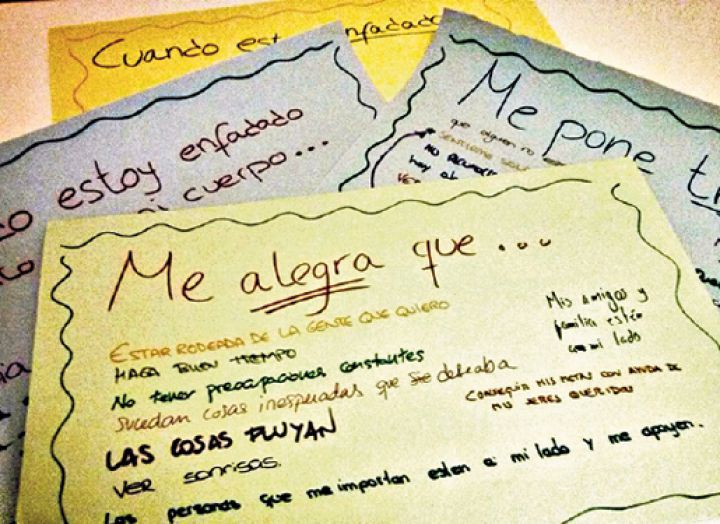 Cuando est enfadado
estoy enfadado
mi cuerpo...
Me pone
que alguien no
Me alegra que...
ESTAR RODEADA DE LA GENTE QUE QUIERO
HAGA BUEN TIEMPO
No tener preocupaciones constantes
sucedan cosas inesperadas que se deseaba
LAS COSAS FLUYAN
VER SONRISAS.
Las personas que me importan esten a mi lado y me apoyen.
Mis amigos y
familia estén
con mi lado
CONSEGUIR MIS METAS CON AYUDA DE
MIS SERES QUERIDOS